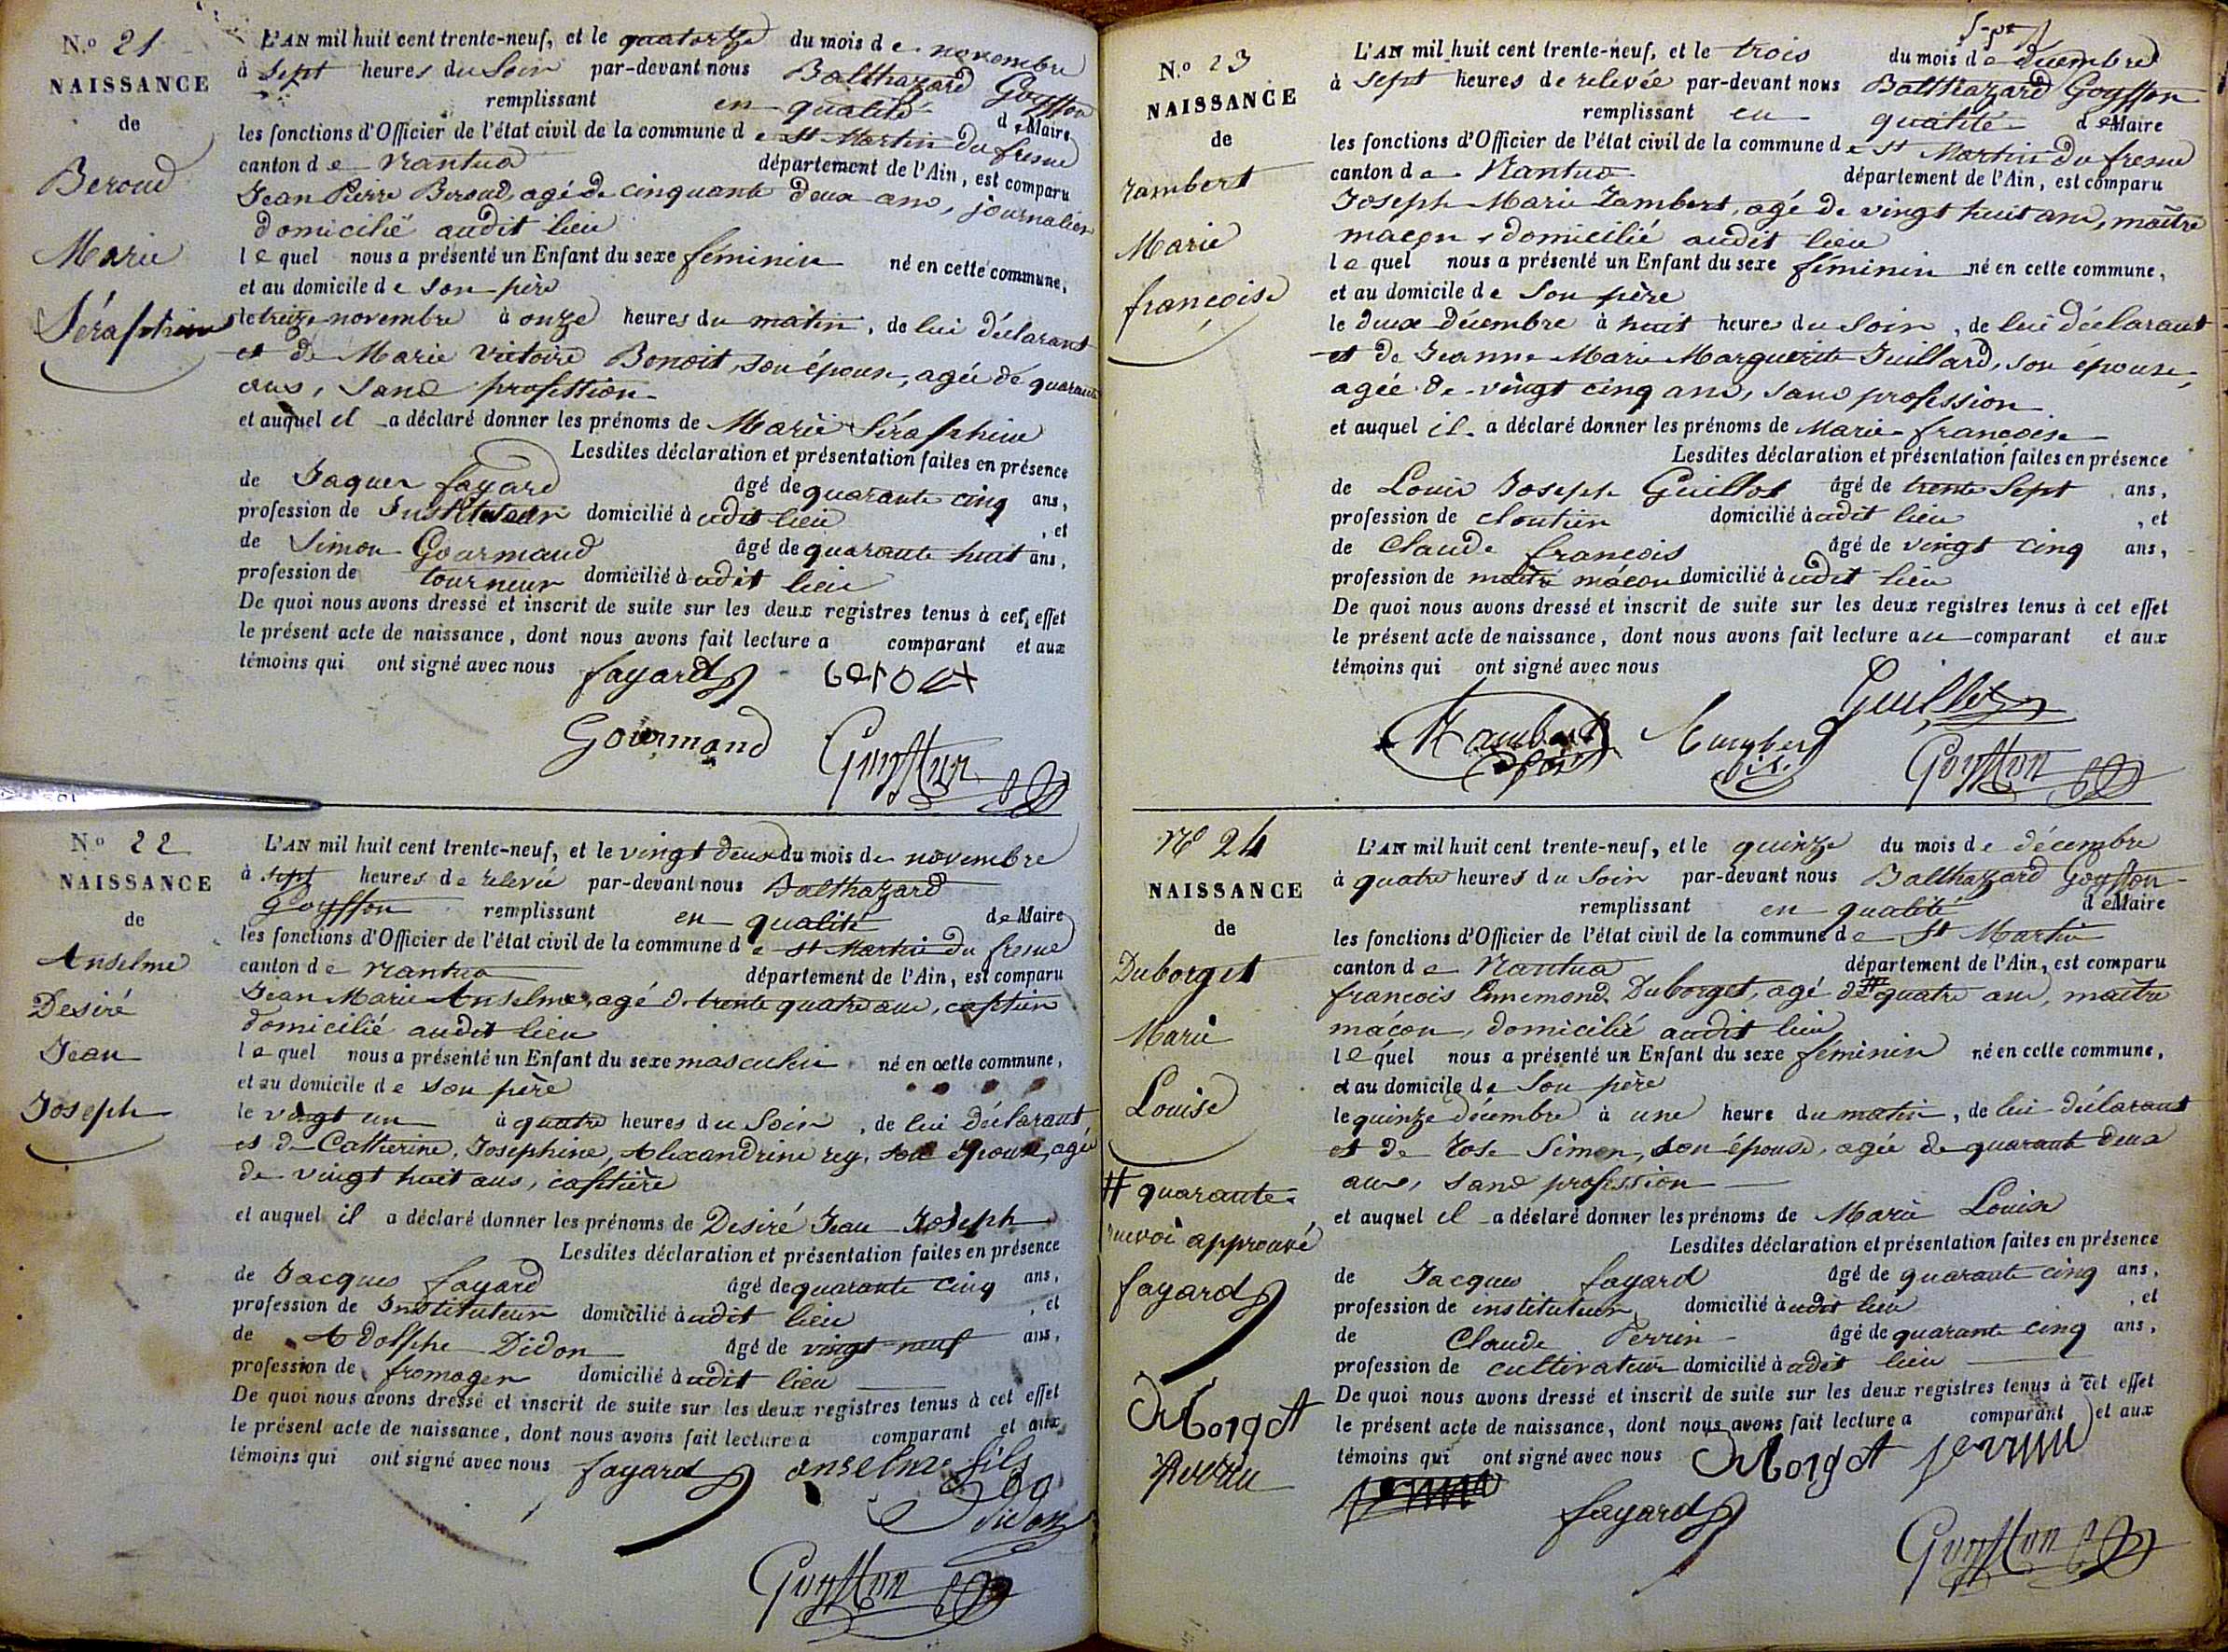 N.o 21
NAISSANCE
de
Beroud
Marie
Séraphine
L'AN mil huit cent trente-neuf, et le quatorze du mois de novembre
à sept heures du Soir par-devant nous Balthazard Goyffon
remplissant en qualité de Maire
les fonctions d'Officier de l'état civil de la commune de St Martin du fresne
canton de Nantua département de l'Ain, est comparu
Jean Pierre Beroud, agé de cinquante deux ans, journalier
domicilié audit lieu
lequel nous a présenté un Enfant du sexe féminin né en cette commune,
et au domicile de son père
le treize novembre à onze heures du matin, de lui déclarant
et de Marie victoire Benoit, son épouse, agée de quarante
ans, sans profession
et auquel il a déclaré donner les prénoms de Marie Séraphine
Lesdites déclaration et présentation faites en présence
de Jaques fayard âgé de quarante cinq ans,
profession de Instituteur domicilié à udit lieu, et
de Simon Gourmand âgé de quarante huit ans,
profession de tourneur domicilié à udit lieu
De quoi nous avons dressé et inscrit de suite sur les deux registres tenus à cet effet
le présent acte de naissance, dont nous avons fait lecture a comparant et aux
témoins qui ont signé avec nous fayard
Gourmand Goyffon
N.o 22
NAISSANCE
de
Anselme
Desiré
Jean
Joseph
L'AN mil huit cent trente-neuf, et le vingt deux du mois de novembre
à sept heures de relevée par-devant nous Balthazard
Goyffon remplissant en qualité de Maire
les fonctions d'Officier de l'état civil de la commune de St Martin du fresne
canton de Nantua département de l'Ain, est comparu
Jean Marie Anselme, agé de trente quatre ans, captier
domicilié audit lieu
lequel nous a présenté un Enfant du sexe masculin né en cette commune,
et au domicile de son père
le vingt un à quatre heures du Soir, de lui déclarant
et de Catherine, Josephine, Alexandrine rey, son épouse, agée
de vingt huit ans, captière
et auquel il a déclaré donner les prénoms de Desiré Jean Joseph
Lesdites déclaration et présentation faites en présence
de Jacques fayard âgé de quarante cinq ans,
profession de Instituteur domicilié à udit lieu, et
de Adolphe Didon âgé de vingt neuf ans,
profession de fromager domicilié à udit lieu
De quoi nous avons dressé et inscrit de suite sur les deux registres tenus à cet effet
le présent acte de naissance, dont nous avons fait lecture a comparant et aux
témoins qui ont signé avec nous fayard anselme fils
didon
Goyffon
N.o 23
NAISSANCE
de
Zambert
Marie
françoise
L'AN mil huit cent trente-neuf, et le trois du mois de décembre
à sept heures de relevée par-devant nous Balthazard Goyffon
remplissant en qualité de Maire
les fonctions d'Officier de l'état civil de la commune de St Martin du fresne
canton de Nantua département de l'Ain, est comparu
Joseph Marie Zambert, agé de vingt huit ans, maître
maçon, domicilié audit lieu
lequel nous a présenté un Enfant du sexe féminin né en cette commune,
et au domicile de Son père
le deux Décembre à huit heures du Soir, de lui déclarant
et de Jeanne Marie Marguerite Juillard, son épouse,
agée de vingt cinq ans, sans profession
et auquel il a déclaré donner les prénoms de Marie françoise
Lesdites déclaration et présentation faites en présence
de Louis Joseph Guillot âgé de trente Sept ans,
profession de cloutier domicilié à udit lieu, et
de Claude françois âgé de vingt cinq ans,
profession de maître maçon domicilié à udit lieu
De quoi nous avons dressé et inscrit de suite sur les deux registres tenus à cet effet
le présent acte de naissance, dont nous avons fait lecture au comparant et aux
témoins qui ont signé avec nous
Guillot
Goyffon
No 24
NAISSANCE
de
Duborget
Marie
Louise
# quarante
renvoi approuvé
fayard
Duborget
Perrin
L'AN mil huit cent trente-neuf, et le quinze du mois de décembre
à quatre heures du Soir par-devant nous Balthazard Goyffon
remplissant en qualité de Maire
les fonctions d'Officier de l'état civil de la commune de St Martin
canton de Nantua département de l'Ain, est comparu
françois Ennemond Duborget, agé de # quatre ans, maître
maçon, domicilié audit lieu
lequel nous a présenté un Enfant du sexe féminin né en cette commune,
et au domicile de Son père
le quinze décembre à une heure du matin, de lui déclarant
et de Rose Simon, son épouse, agée de quarante deux
ans, sans profession
et auquel il a déclaré donner les prénoms de Marie Louise
Lesdites déclaration et présentation faites en présence
de Jacques fayard âgé de quarante cinq ans,
profession de instituteur domicilié à udit lieu, et
de Claude Perrin âgé de quarante cinq ans,
profession de cultivateur domicilié à udit lieu
De quoi nous avons dressé et inscrit de suite sur les deux registres tenus à cet effet
le présent acte de naissance, dont nous avons fait lecture a comparant et aux
témoins qui ont signé avec nous Duborget perrin
fayard
Goyffon